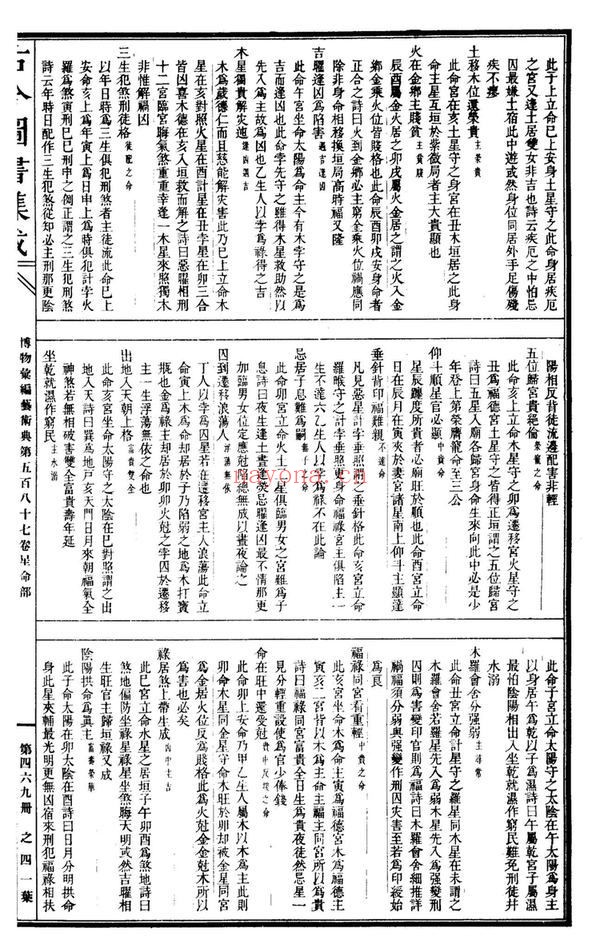 此于上立命巳上安身土星守之此命身居疾厄
之宮又逢土居雙女非吉也詩云疾厄之中怕忌
囚最嫌土宿此中遊或然身位同居外手足傷殘
疾不瘳
土移木位還榮貴 主榮貴
此命宮在亥土星守之身宮在丑木垣居之此身
命主星互垣於紫微局者主大貴顯也
火在金鄉主賤貧 主貧賤
辰酉屬金火居之卯戌屬火金居之謂之火入金
鄉金乘火位皆賤格也此命辰酉卯戌安身命者
正合之詩曰火到金鄉必主窮金乘火位禍應同
除非身命相移換垣局高時福又隆
吉曜逢凶爲陷害 遇吉還凶
此命午宮坐命太陽爲命主今有木孛守之是爲
吉而逢凶也此命孛先守之雖得木星救助然以
先入爲主故爲凶也乙生人以孛爲祿得之吉
木星獨貴解災迍 逢凶遇吉
木爲歲德仁而且慈能解災害此乃巳上立命木
星在亥對照火星在酉計星在丑孛星在卯三合
皆凶喜木德在亥入垣救而解之詩曰惡曜相刑
十二宮臨宮晦氣煞重重幸逢一木星來照獨木
非惟解禍凶
三生犯煞刑徒格 徒配之命
以年日時爲三生俱犯刑煞者主徒流此命巳上
安命亥上爲年寅上爲日申上爲時俱犯計孛火
羅爲煞寅刑巳巳刑申之倒正謂之三生犯刑煞
詩云年時日配作三生犯煞從知必主刑那更陰
陽相反背徒流邊配害非輕
五位歸宮貴絕倫 榮顯之命
此命亥上立命木星守之卯爲遷移宮火星守之
丑爲福德宮土星守之皆得正垣謂之五位歸宮
詩曰五星入廟各歸宮身命生來向此中必是少
年登上第榮膺龍命至三公
仰斗順星官必顯 中貴命
星辰躔度所貴者必廟旺於順也此命酉宮立命
日在辰月在寅夾於妻宮諸星南上仰斗主顯達
垂針背印福難親 不達命
凡見惡星計孛垂照謂之垂針格此命亥宮立命
羅睺守之計孛垂照身命福祿宮主俱陷主一
生不達六乙生人以孛爲祿不在此論
忌居子息難爲嗣
此命卯宮立命火土二星俱臨男女之宮雖爲子
息詩曰夜生逢土晝火忌曜逢凶最不情那更
加臨男女位定應伯道無成以晝夜論之
囚到遷移浪蕩人 浮蕩無依
丁人以孛爲囚星若在遷移宮主人浪蕩此命立
命寅上木爲命却居於子乃陷弱之地爲木打寶
瓶也金爲祿主却居於卯卯火尅之孛囚於遷移
主一生浮蕩無依之命也
出地入天朝上格 富貴雙全
此命亥宮坐命太陽守之太陰在巳對照謂之出
地入天詩曰巽爲地戸亥天門日月來朝福氣全
神煞若無相破害雙全富貴壽年延
坐乾就濕作窮民 主水溺
此命子宮立命太陽守之太陰在午太陽爲身主
以身居午爲乾以子爲濕詩曰午屬乾宮子屬濕
最怕陰陽相出入坐乾就濕作窮民雖免刑徒井
水溺
木羅會舍分强弱 主非常
此命丑宮立命計星守之羅星同木星在未謂之
木羅會舍若羅星先入爲弱木星先入爲强變刑
囚則爲害變印官則爲福詩曰木羅會命細推詳
禍福須分弱與强變作刑囚災害至若爲印綬始
爲良
福祿同宮看重輕 中貴之命
此亥宮坐命木爲命主寅爲福德宮木爲福德主
寅亥二宮皆以木爲主命主福主同宮所以爲貴
詩曰福祿同宮富貴全日生爲貴夜徒然忌星一
見分輕重設使爲官少俸錢
命在旺中還受尅 貴中反賤之命
此命卯上安命乃甲乙生人屬木以木爲主此則
卯命木星同金星守命木旺於卯却被金星同宮
爲金居火位反爲賤格此爲火尅金金尅木所以
爲害也必矣
祿居煞上帶生成 凶中主吉
此巳宮立命水星之居垣子午卯酉爲煞地詩曰
煞地偏防坐祿星祿星坐煞晦天明或然吉曜相
生旺官主歸垣祿又成
陰陽拱命爲眞主 富壽榮華
此子命太陽在卯太陰在酉詩曰日月分明拱命
身此星夾輔最光明更無凶宿來刑犯福祿相扶
博物彙編藝術典第五百八十七卷星命部
第四六九册 之四一葉
nayona.cn